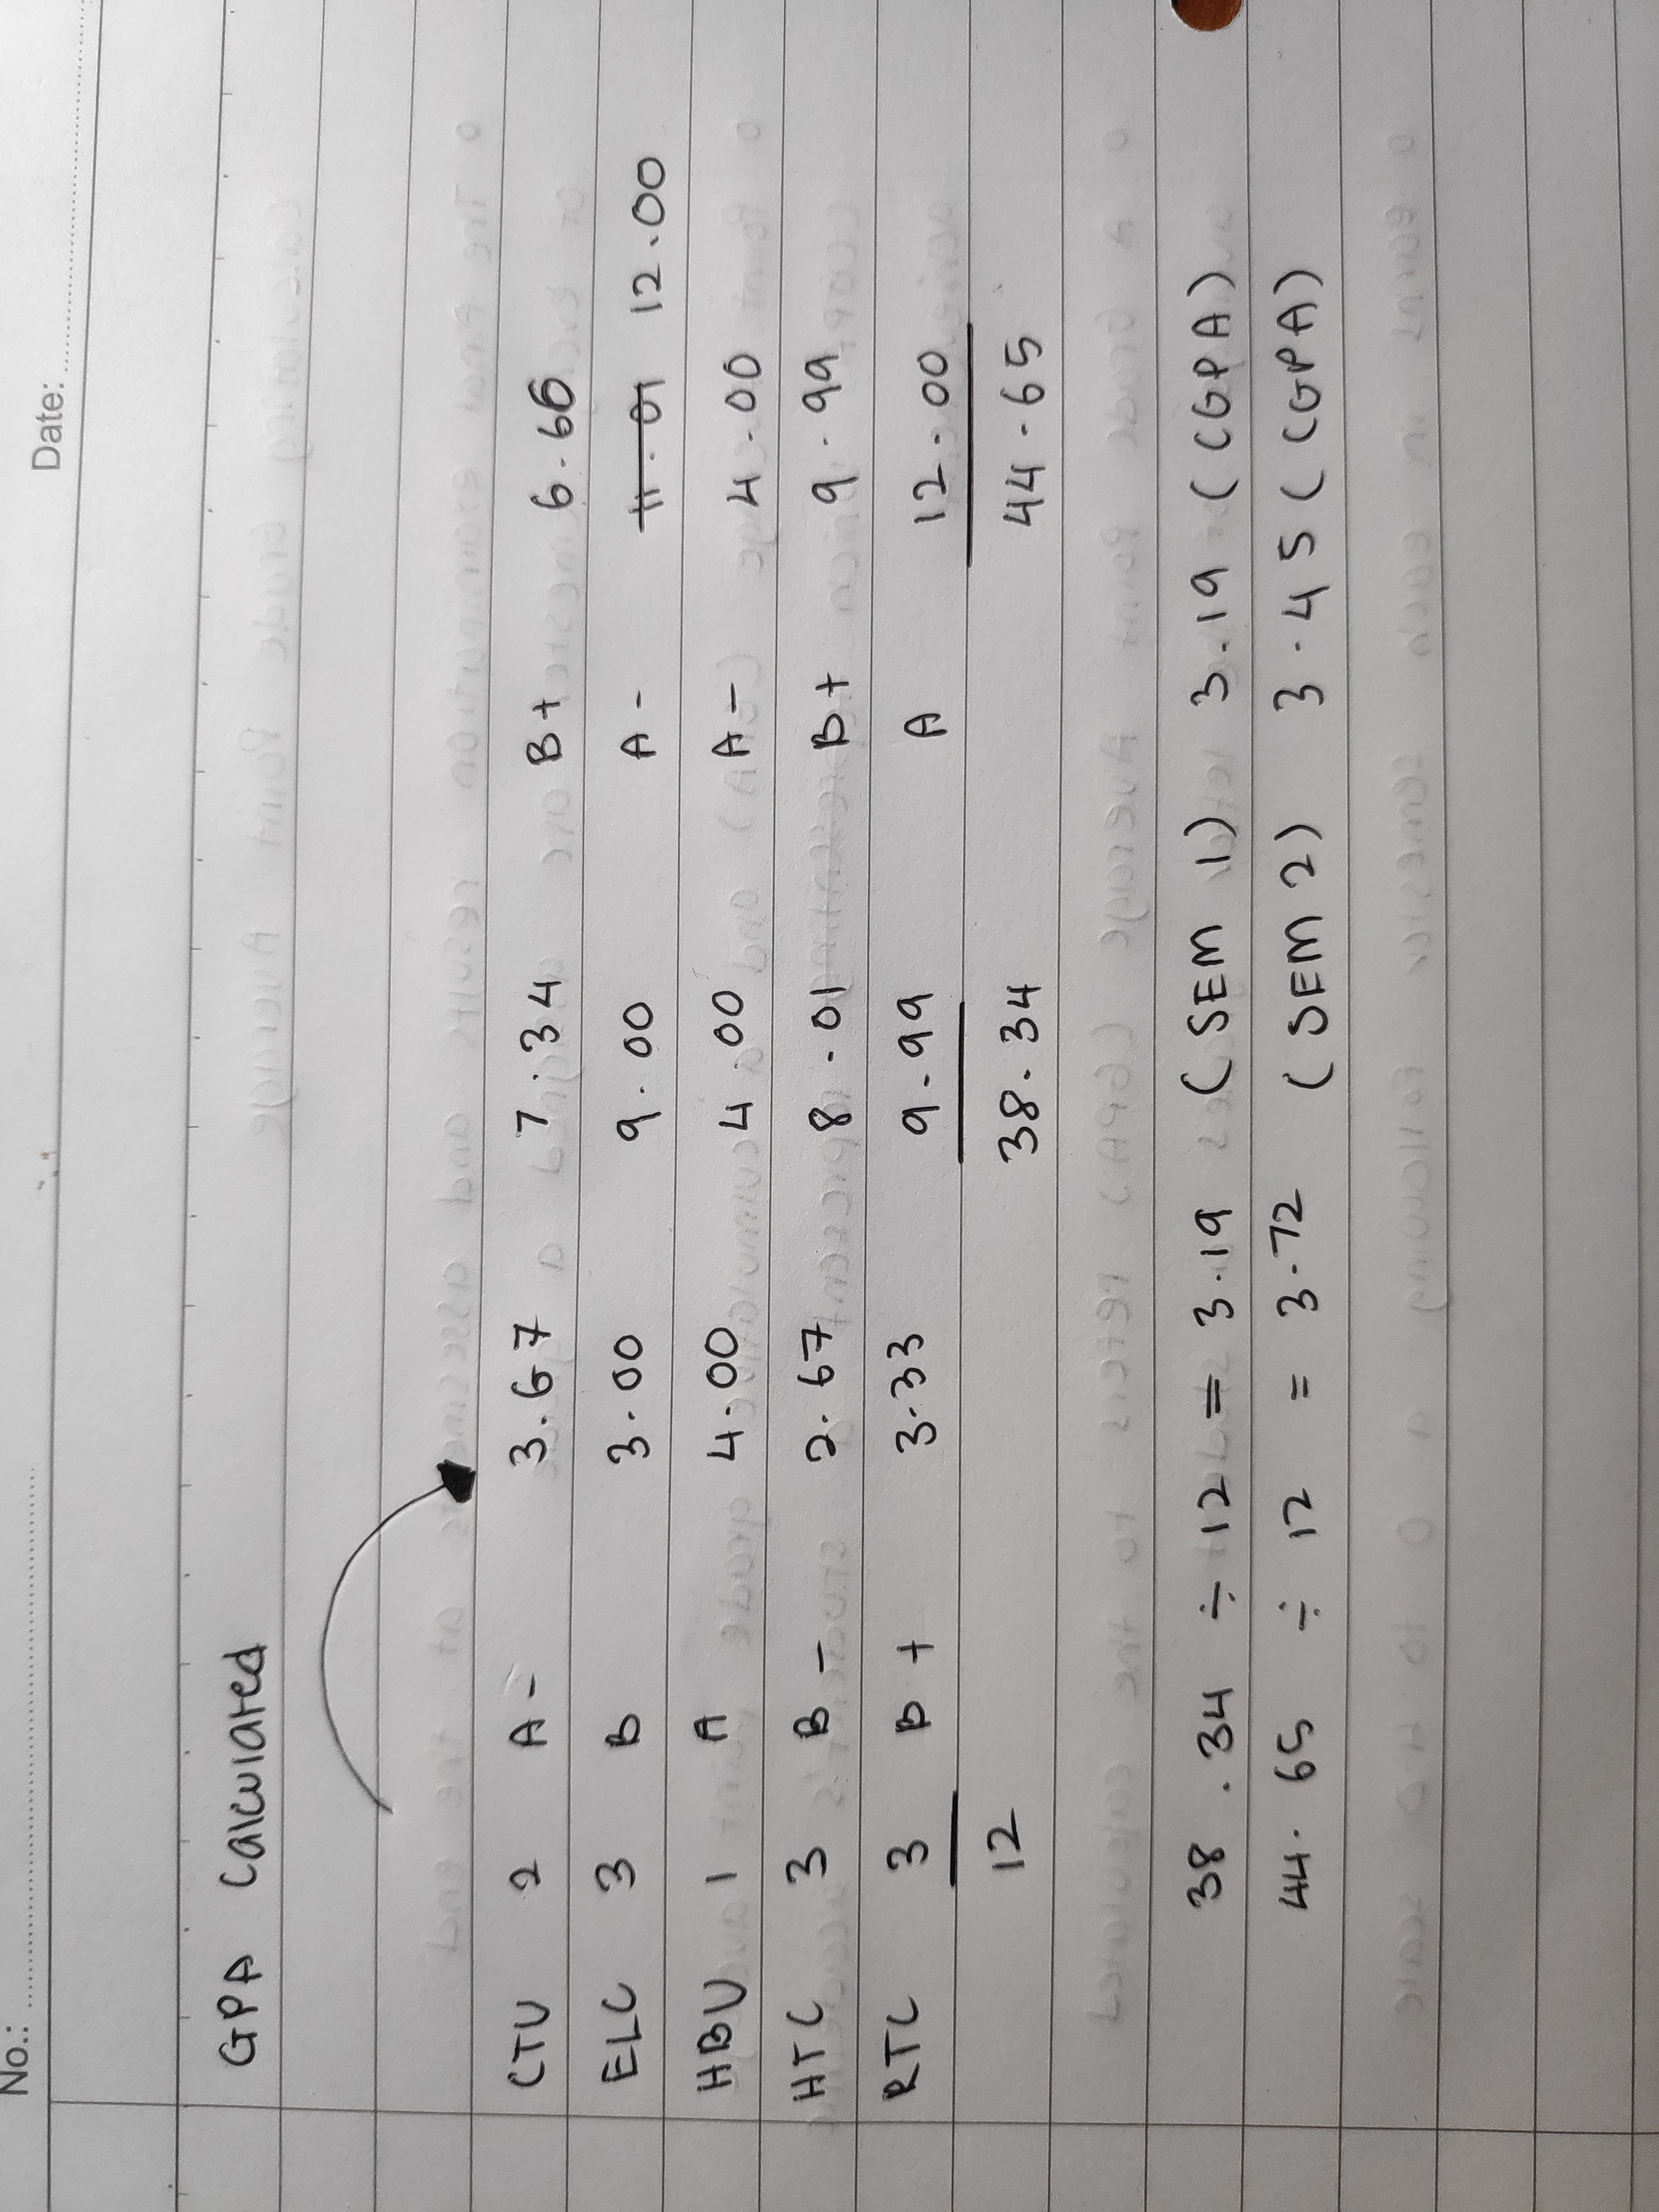 No.: Date:
GPA Calculated
CTU 2 A- 3.67 7.34 B+ 6.66
ELC 3 B 3.00 9.00 A- 11.01 12.00
HBU 1 A 4.00 4.00 A- 4.00
HTC 3 B- 2.67 8.01 B+ 9.99
RTC 3 B+ 3.33 9.99 A 12.00
12 38.34 44.65
38.34 ÷ 12 = 3.19 (SEM 1) 3.19 (CGPA)
44.65 ÷ 12 = 3.72 (SEM 2) 3.45 (CGPA)